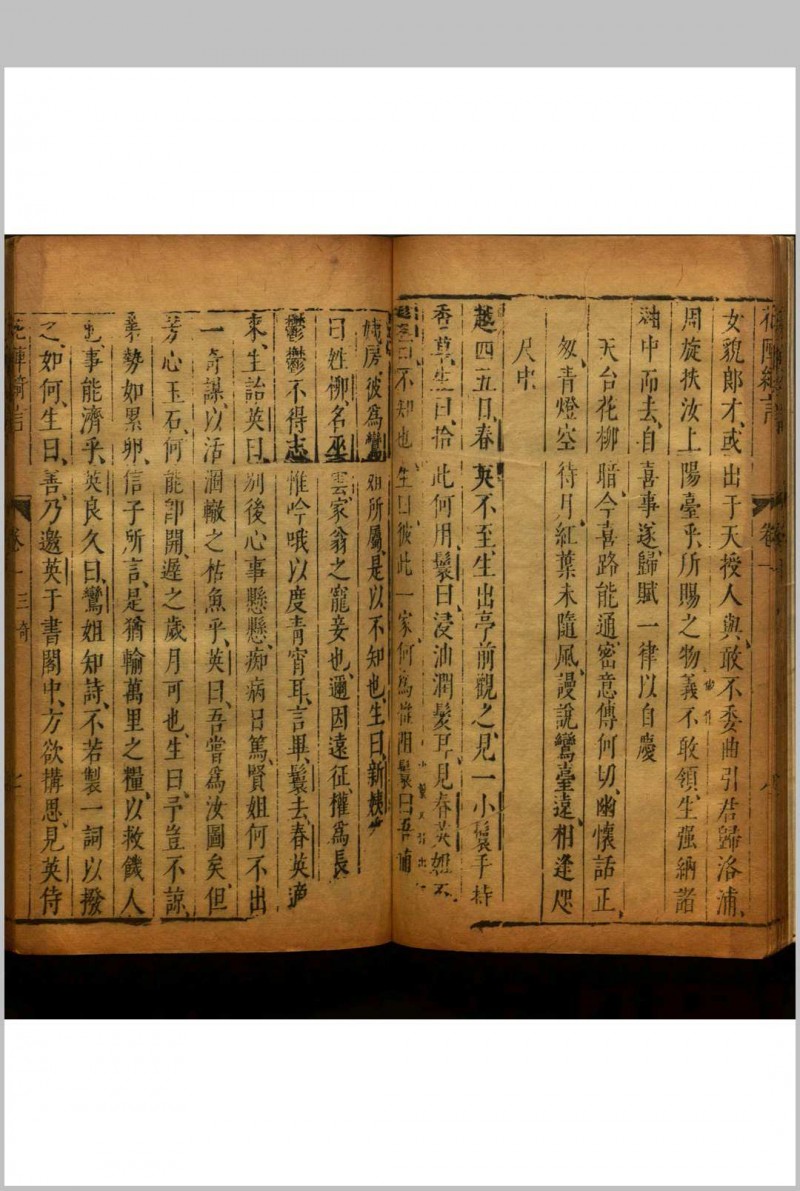 女貌郎才、或出于天授人與、敢不委曲引君歸洛浦、
周旋扶汝上陽臺乎、所賜之物義不敢領、生强納諸
袖中而去、自喜事遂、歸賦一律以自慶
天台花柳暗、今喜路能通、密意傳何切、幽懷話正
匆、青燈空待月、紅葉未隨風、謾説鸞臺遠、相逢咫
尺中
越四五日、春英不至、生出亭前觀之、見一小鬟手持
香草、生曰、拾此何用、鬟曰、浸油潤髮耳、見春英姐不
曰不知也、生曰彼此一家、何爲 鬟曰吾
姨房、彼爲鸞姐所屬、是以不知也、生曰、新姨
曰姓柳、名巫雲、家翁之寵妾也、邇因遠征、權爲長
鬱鬱不得志、惟吟哦以度青宵耳、言畢、鬟去、春英適
來、生詒英曰、别後心事懸懸、痴病日篤、賢姐何不出
一奇謀、以活涸轍之枯魚乎、英曰、吾嘗爲汝圖矣、但
芳心玉石、何能卽開、遲之歲月可也、生曰、予豈不諒、
第勢如累卵、信子所言、是猶輸萬里之糧、以救饑人
也、事能濟乎、英良久曰、鸞姐知詩、不若製一詞以撥
之、如何、生曰、善、乃邀英于書閣中、方欲搆思、見英侍
卷一